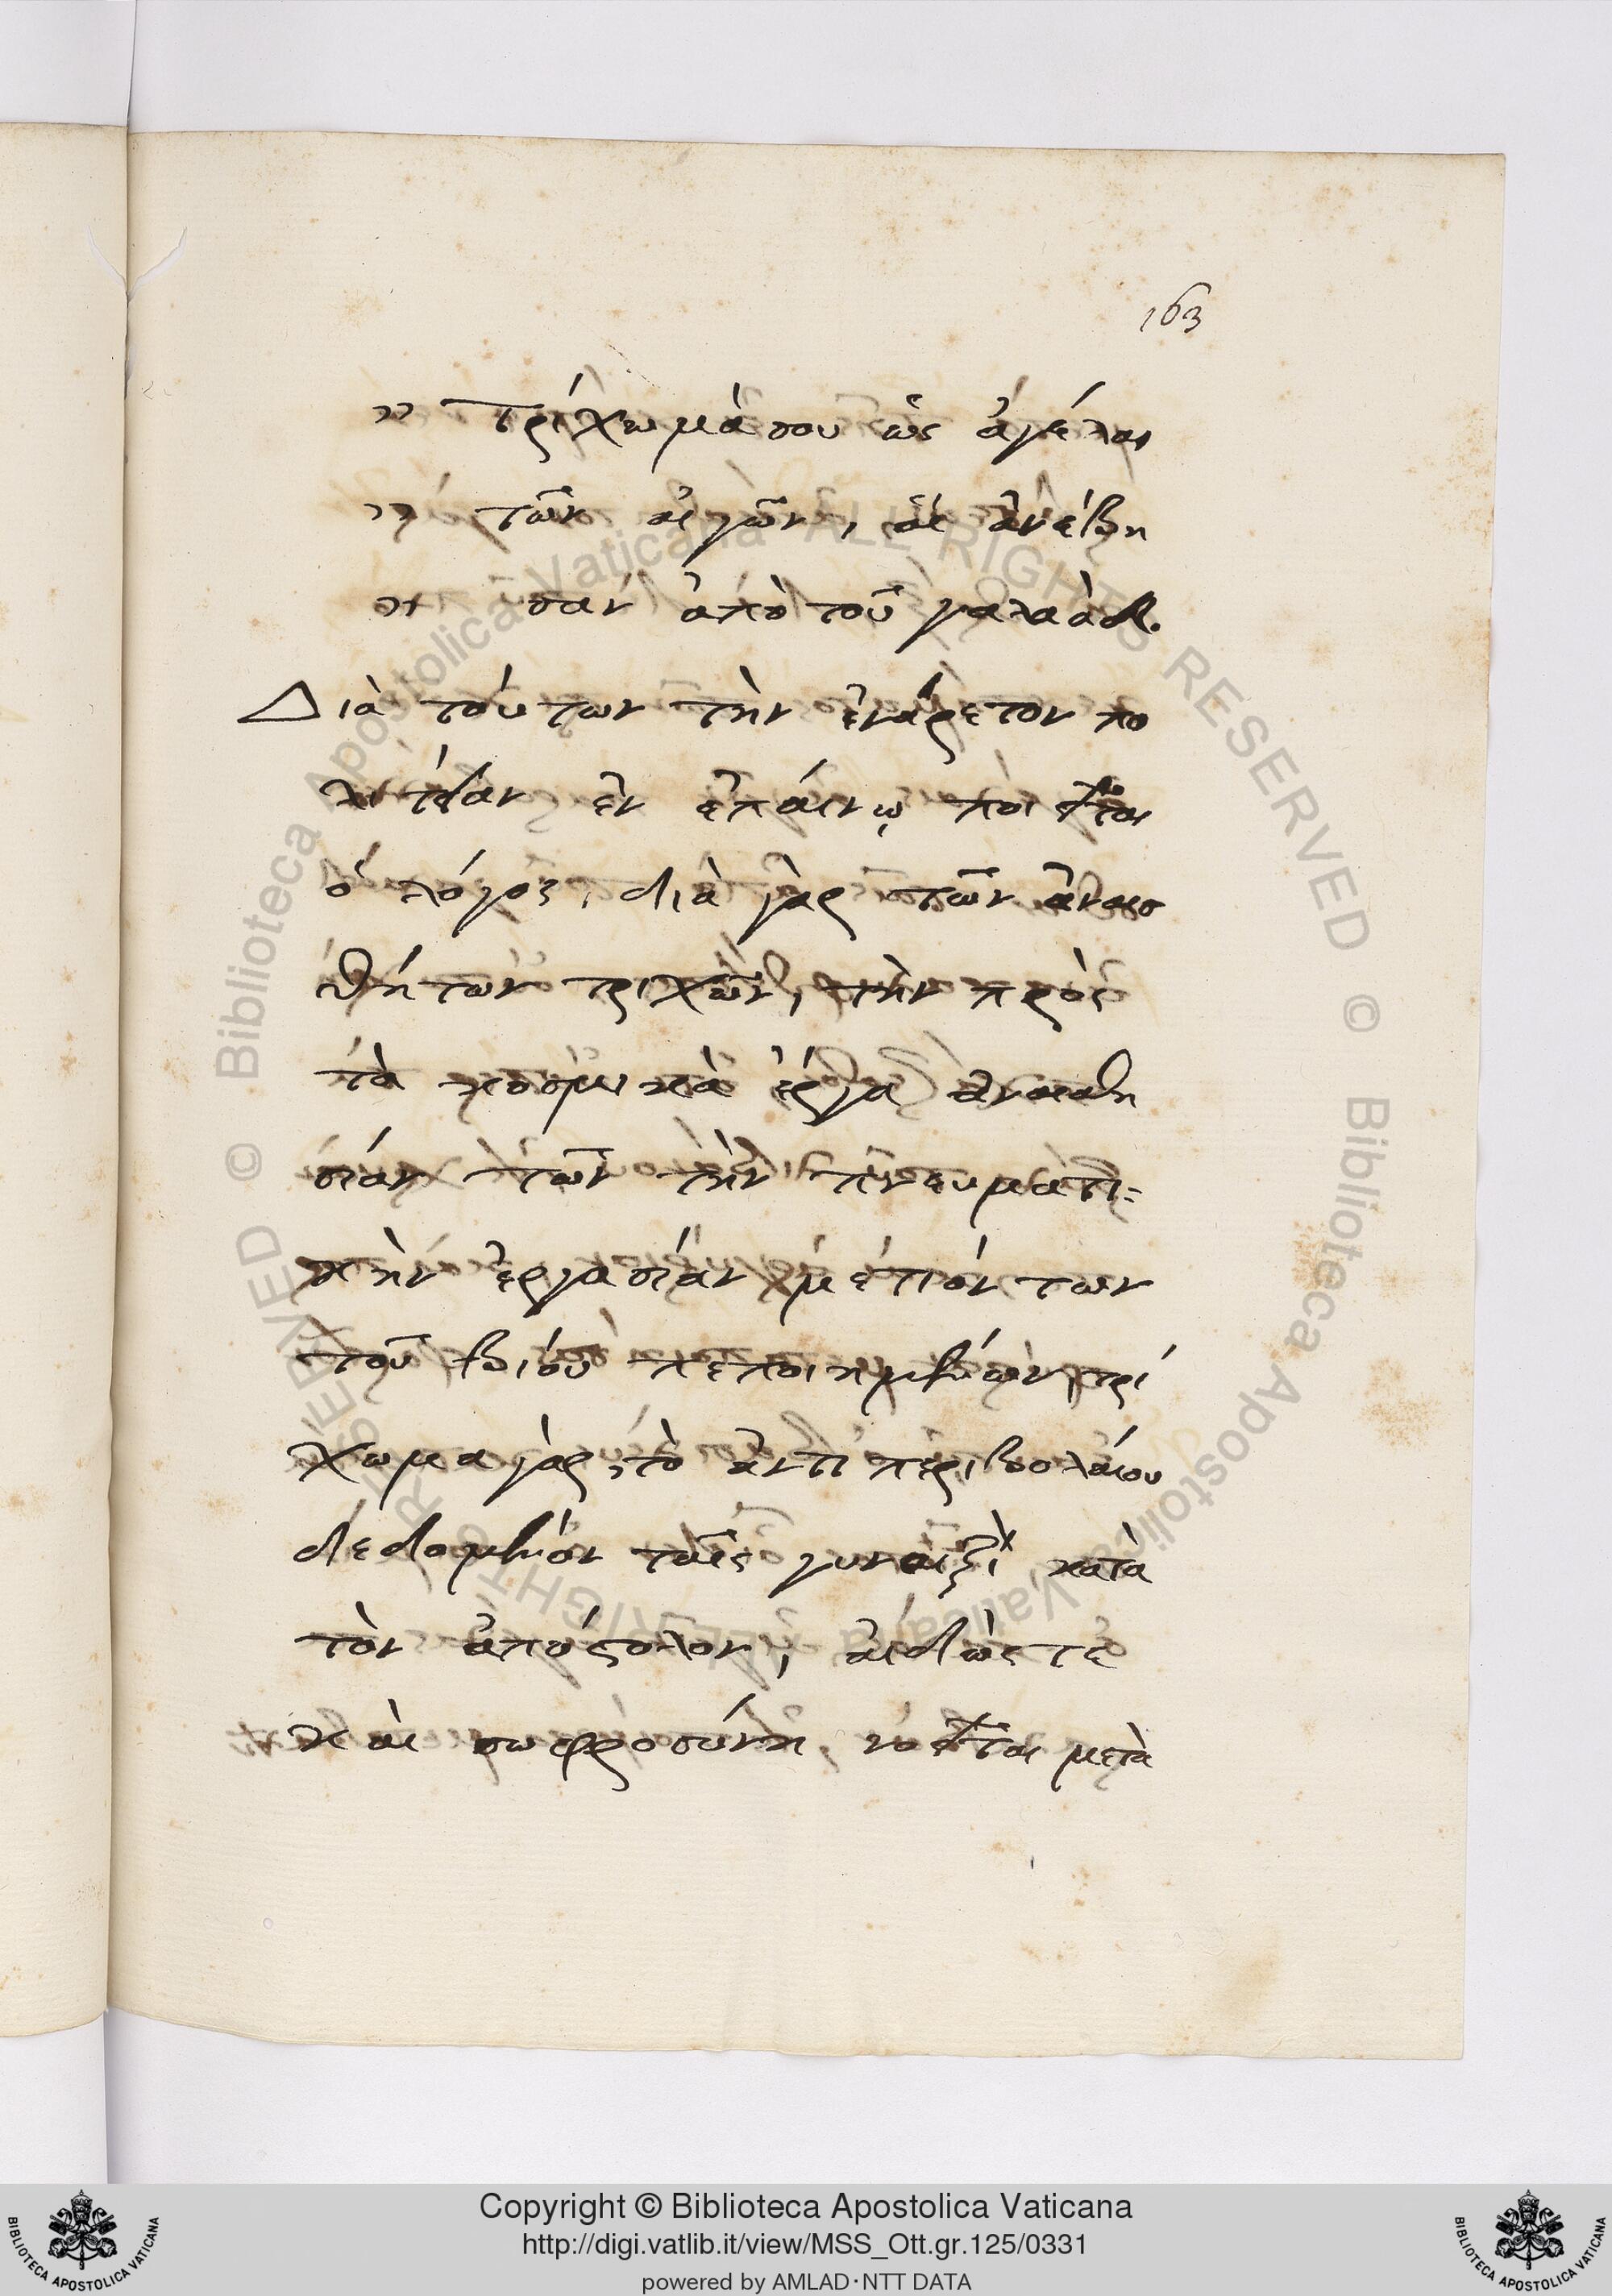 163
» τρίχωμά σου ὡς ἀγέλαι
» τῶν αἰγῶν, αἳ ἀνέβη
» σαν ἀπὸ τοῦ γαλαάδ.
Διὰ τούτων τὴν ἐνάρετον πο
λιτείαν ἐν ἐπαίνῳ ποιεῖται
ὁ λόγος, διὰ γὰρ τῶν ἀναισ
θήτων τριχῶν, τὴν πρὸς
τὰ κοσμικὰ ἔργα ἀναισθη
σίαν τῶν τὴν πνευματι=
κὴν ἐργασίαν μετιόντων
τοῦ βίου πεποιημένων, τρί
χωμα γὰρ, τὸ ἀντὶ περιβολαίου
δεδομένον ταῖς γυναιξὶ κατὰ
τὸν ἀπόστολον, αἰδώς τε
καὶ σωφροσύνη, νοεῖται μετὰ
© Biblioteca Apostolica Vaticana ALL RIGHTS RESERVED © Biblioteca Apostolica Vaticana ALL RIGHTS RESERVED
Copyright © Biblioteca Apostolica Vaticana
http://digi.vatlib.it/view/MSS_Ott.gr.125/0331
powered by AMLAD·NTT DATA
BIBLIOTECA APOSTOLICA VATICANA
BIBLIOTECA APOSTOLICA VATICANA